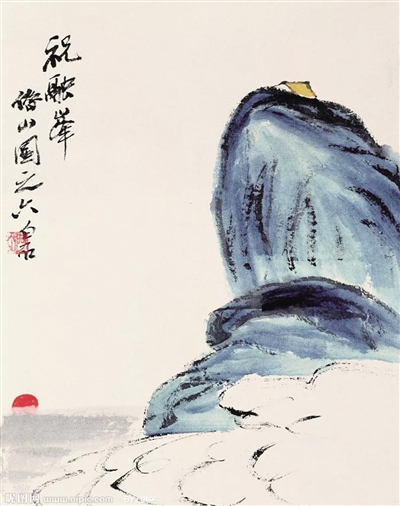 祝融峯
借山圖之六 白石
昵图网 www.nipic.com